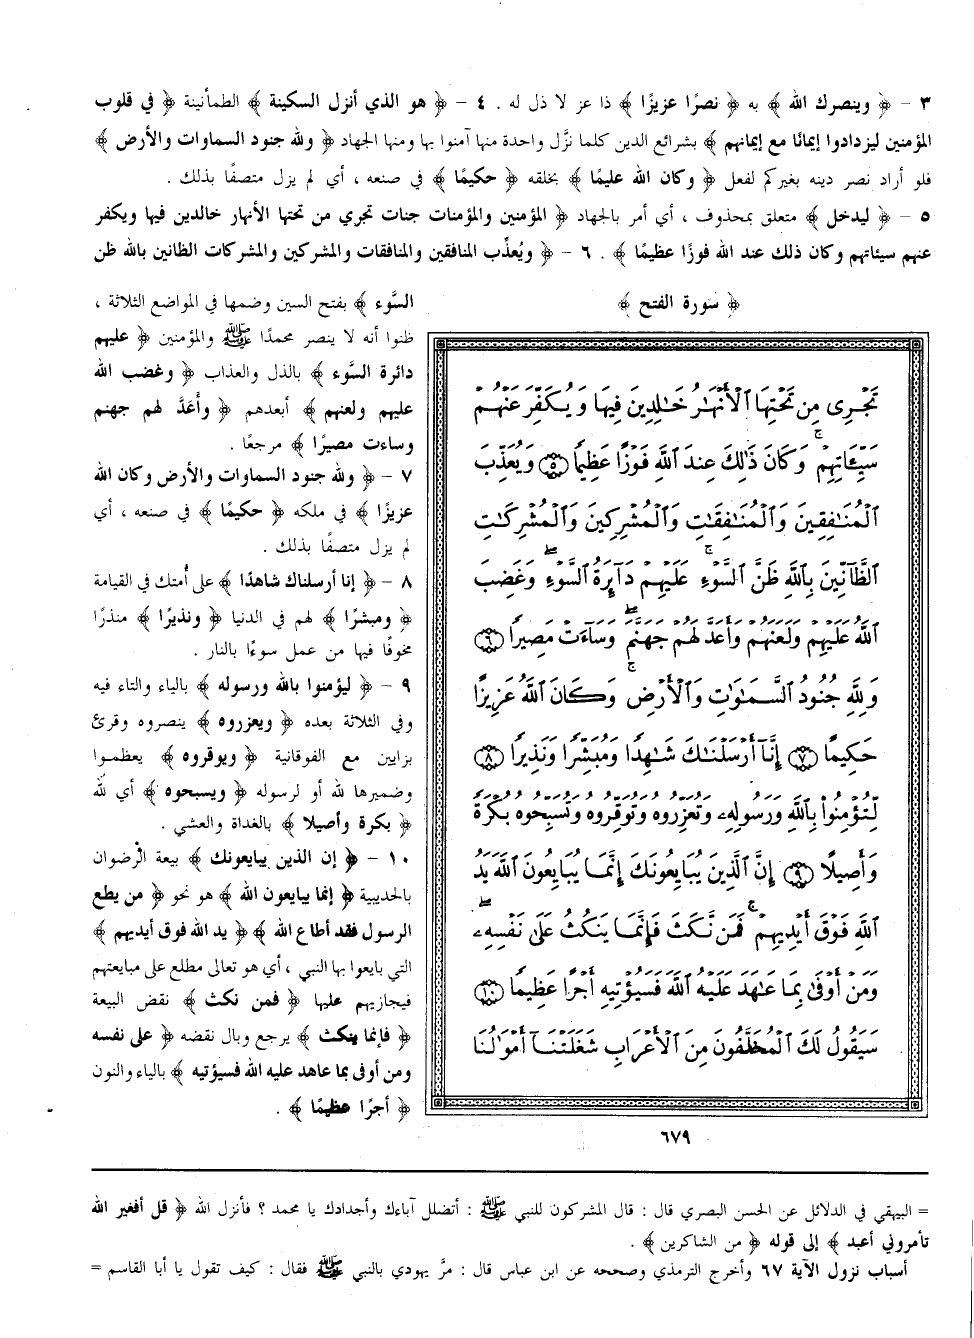 ٣ - ﴿ وينصرك الله ﴾ به ﴿ نصرًا عزيزًا ﴾ ذا عز لا ذل له . ٤ - ﴿ هو الذي أنزل السكينة ﴾ الطمأنينة ﴿ في قلوب
المؤمنين ليزدادوا إيمانًا مع إيمانهم ﴾ بشرائع الدين كلما نزَّل واحدة منها آمنوا بها ومنها الجهاد ﴿ ولله جنود السماوات والأرض ﴾
فلو أراد نصر دينه بغيركم لفعل ﴿ وكان الله عليمًا ﴾ بخلقه ﴿ حكيمًا ﴾ في صنعه ، أي لم يزل متصفًا بذلك .
٥ - ﴿ ليدخل ﴾ متعلق بمحذوف ، أي أمر بالجهاد ﴿ المؤمنين والمؤمنات جنات تجري من تحتها الأنهار خالدين فيها ويكفر
عنهم سيئاتهم وكان ذلك عند الله فوزًا عظيمًا ﴾ . ٦ - ﴿ ويُعذِّب المنافقين والمنافقات والمشركين والمشركات الظانين بالله ظن
السَّوء ﴾ بفتح السين وضمها في المواضع الثلاثة ،
ظنوا أنه لا ينصر محمدًا ﷺ والمؤمنين ﴿ عليهم
دائرة السَّوء ﴾ بالذل والعذاب ﴿ وغضب الله
عليهم ولعنهم ﴾ أبعدهم ﴿ وأعدَّ لهم جهنم
وساءت مصيرًا ﴾ مرجعًا .
٧ - ﴿ ولله جنود السماوات والأرض وكان الله
عزيزًا ﴾ في ملكه ﴿ حكيمًا ﴾ في صنعه ، أي
لم يزل متصفًا بذلك .
٨ - ﴿ إنا أرسلناك شاهدًا ﴾ على أُمتك في القيامة
﴿ ومبشرًا ﴾ لهم في الدنيا ﴿ ونذيرًا ﴾ منذرًا
مخوفًا فيها من عمل سوءًا بالنار .
٩ - ﴿ ليؤمنوا بالله ورسوله ﴾ بالياء والتاء فيه
وفي الثلاثة بعده ﴿ ويعزروه ﴾ ينصروه وقرئ
بزايين مع الفوقانية ﴿ ويوقروه ﴾ يعظموا
وضميرها لله أو لرسوله ﴿ ويسبحوه ﴾ أي لله
﴿ بكرة وأصيلا ﴾ بالغداة والعشي .
١٠ - ﴿ إن الذين يبايعونك ﴾ بيعة الرضوان
بالحديبية ﴿ إنما يبايعون الله ﴾ هو نحو ﴿ من يطع
الرسول فقد أطاع الله ﴾ ﴿ يد الله فوق أيديهم ﴾
التي بايعوا بها النبي ، أي هو تعالى مطلع على مبايعتهم
فيجازيهم عليها ﴿ فمن نكث ﴾ نقض البيعة
﴿ فإنما ينكث ﴾ يرجع وبال نقضه ﴿ على نفسه
ومن أوفى بما عاهد عليه الله فسيؤتيه ﴾ بالياء والنون
﴿ أجرًا عظيمًا ﴾ .
﴿ سورة الفتح ﴾
تَجْرِى مِن تَحْتِهَا ٱلْأَنْهَٰرُ خَٰلِدِينَ فِيهَا وَيُكَفِّرَ عَنْهُمْ
سَيِّـَٔاتِهِمْ ۚ وَكَانَ ذَٰلِكَ عِندَ ٱللَّهِ فَوْزًا عَظِيمًا ٥ وَيُعَذِّبَ
ٱلْمُنَٰفِقِينَ وَٱلْمُنَٰفِقَٰتِ وَٱلْمُشْرِكِينَ وَٱلْمُشْرِكَٰتِ
ٱلظَّآنِّينَ بِٱللَّهِ ظَنَّ ٱلسَّوْءِ ۚ عَلَيْهِمْ دَآئِرَةُ ٱلسَّوْءِ ۖ وَغَضِبَ
ٱللَّهُ عَلَيْهِمْ وَلَعَنَهُمْ وَأَعَدَّ لَهُمْ جَهَنَّمَ ۖ وَسَآءَتْ مَصِيرًا ٦
وَلِلَّهِ جُنُودُ ٱلسَّمَٰوَٰتِ وَٱلْأَرْضِ ۚ وَكَانَ ٱللَّهُ عَزِيزًا
حَكِيمًا ٧ إِنَّآ أَرْسَلْنَٰكَ شَٰهِدًا وَمُبَشِّرًا وَنَذِيرًا ٨
لِّتُؤْمِنُوا۟ بِٱللَّهِ وَرَسُولِهِۦ وَتُعَزِّرُوهُ وَتُوَقِّرُوهُ وَتُسَبِّحُوهُ بُكْرَةً
وَأَصِيلًا ٩ إِنَّ ٱلَّذِينَ يُبَايِعُونَكَ إِنَّمَا يُبَايِعُونَ ٱللَّهَ يَدُ
ٱللَّهِ فَوْقَ أَيْدِيهِمْ ۚ فَمَن نَّكَثَ فَإِنَّمَا يَنكُثُ عَلَىٰ نَفْسِهِۦ ۖ
وَمَنْ أَوْفَىٰ بِمَا عَٰهَدَ عَلَيْهُ ٱللَّهَ فَسَيُؤْتِيهِ أَجْرًا عَظِيمًا ١٠
سَيَقُولُ لَكَ ٱلْمُخَلَّفُونَ مِنَ ٱلْأَعْرَابِ شَغَلَتْنَآ أَمْوَٰلُنَا
٦٧٩
= البيهقي في الدلائل عن الحسن البصري قال : قال المشركون للنبي ﷺ : أتضلل آباءك وأجدادك يا محمد ؟ فأنزل الله ﴿ قل أفغير الله
تأمروني أعبد ﴾ إلى قوله ﴿ من الشاكرين ﴾ .
أسباب نزول الآية ٦٧ وأخرج الترمذي وصححه عن ابن عباس قال : مرَّ يهودي بالنبي ﷺ فقال : كيف تقول يا أبا القاسم =